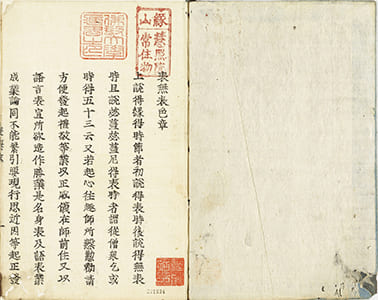 表無表色章
上說得緣得時節者初說得表時後說得無表
時且說苾蒭苾蒭尼得表時者謂從僧乞
時得五十三云又若起心往趣師所慇懃勸請
方便發起禮敬等業以正威儀在師前住又以
語言表宣所欲造作勝業是名身表及語表業
成業論同不能繁引學現行思近因等起正發
緣山
慧照院
常住物